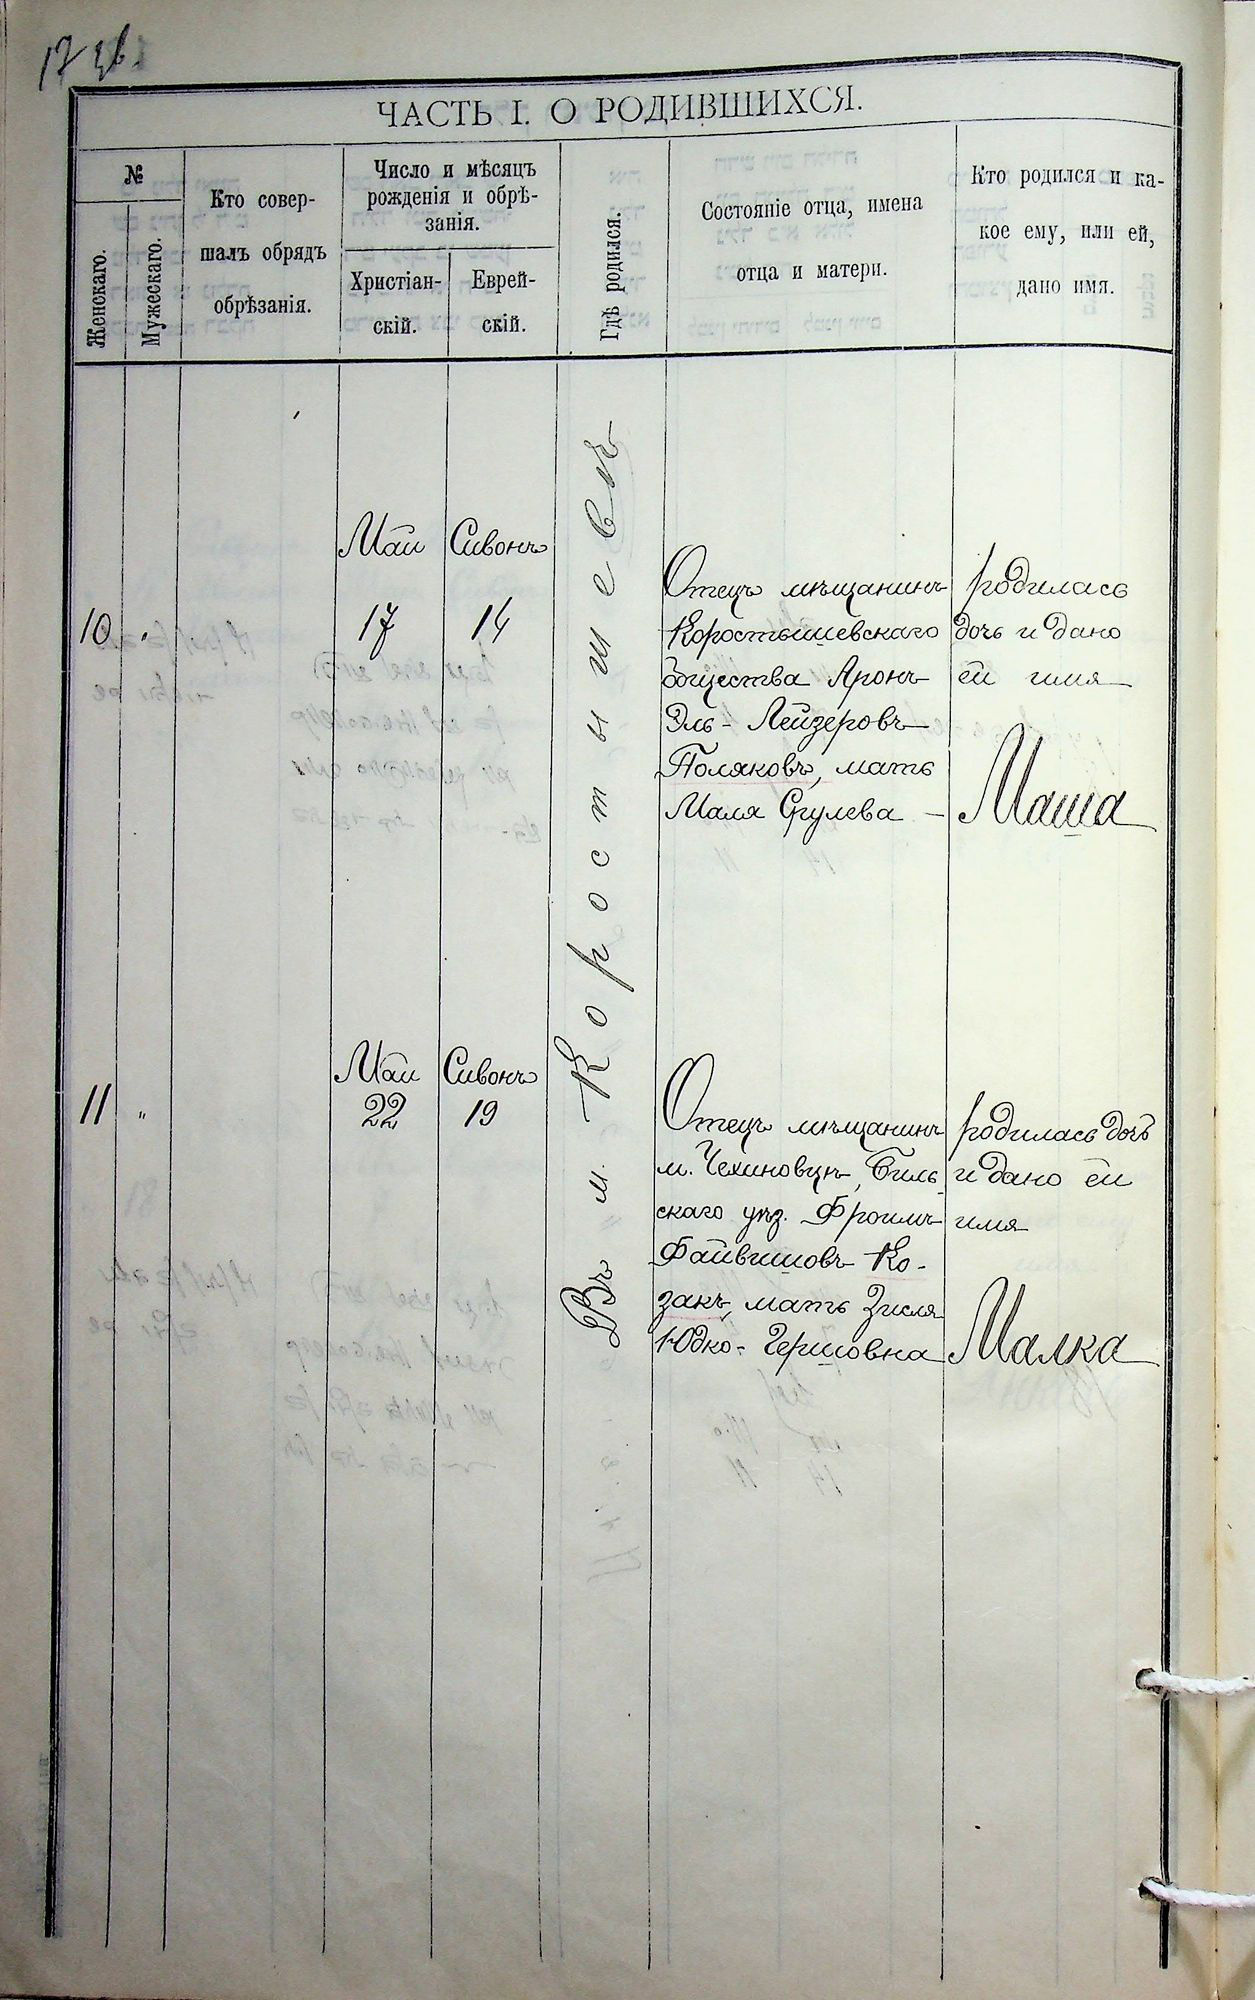 17 об.
ЧАСТЬ I. О РОДИВШИХСЯ.
№
Женскаго.
Мужескаго.
Кто совер-
шалъ обрядъ
обрѣзанія.
Число и мѣсяцъ
рожденія и обрѣ-
занія.
Христіан-
скій.
Еврей-
скій.
Гдѣ родился.
Состояніе отца, имена
отца и матери.
Кто родился и ка-
кое ему, или ей,
дано имя.
Въ м. Коростышевѣ
10 "
Май
17
Сивонъ
14
Отецъ мѣщанинъ
Коростышевскаго
общества Аронъ
Эль-Лейзеровъ
Поляковъ, мать
Маля Срулева —
родилась
дочь и дано
ей имя
Маша
11 "
Май
22
Сивонъ
19
Отецъ мѣщанинъ
м. Чехиновцъ, Биль
скаго уѣз. Фроимъ
Файвишовъ Ко-
закъ, мать Зисля
Юдко-Гершовна
родилась дочь
и дано ей
имя
Малка